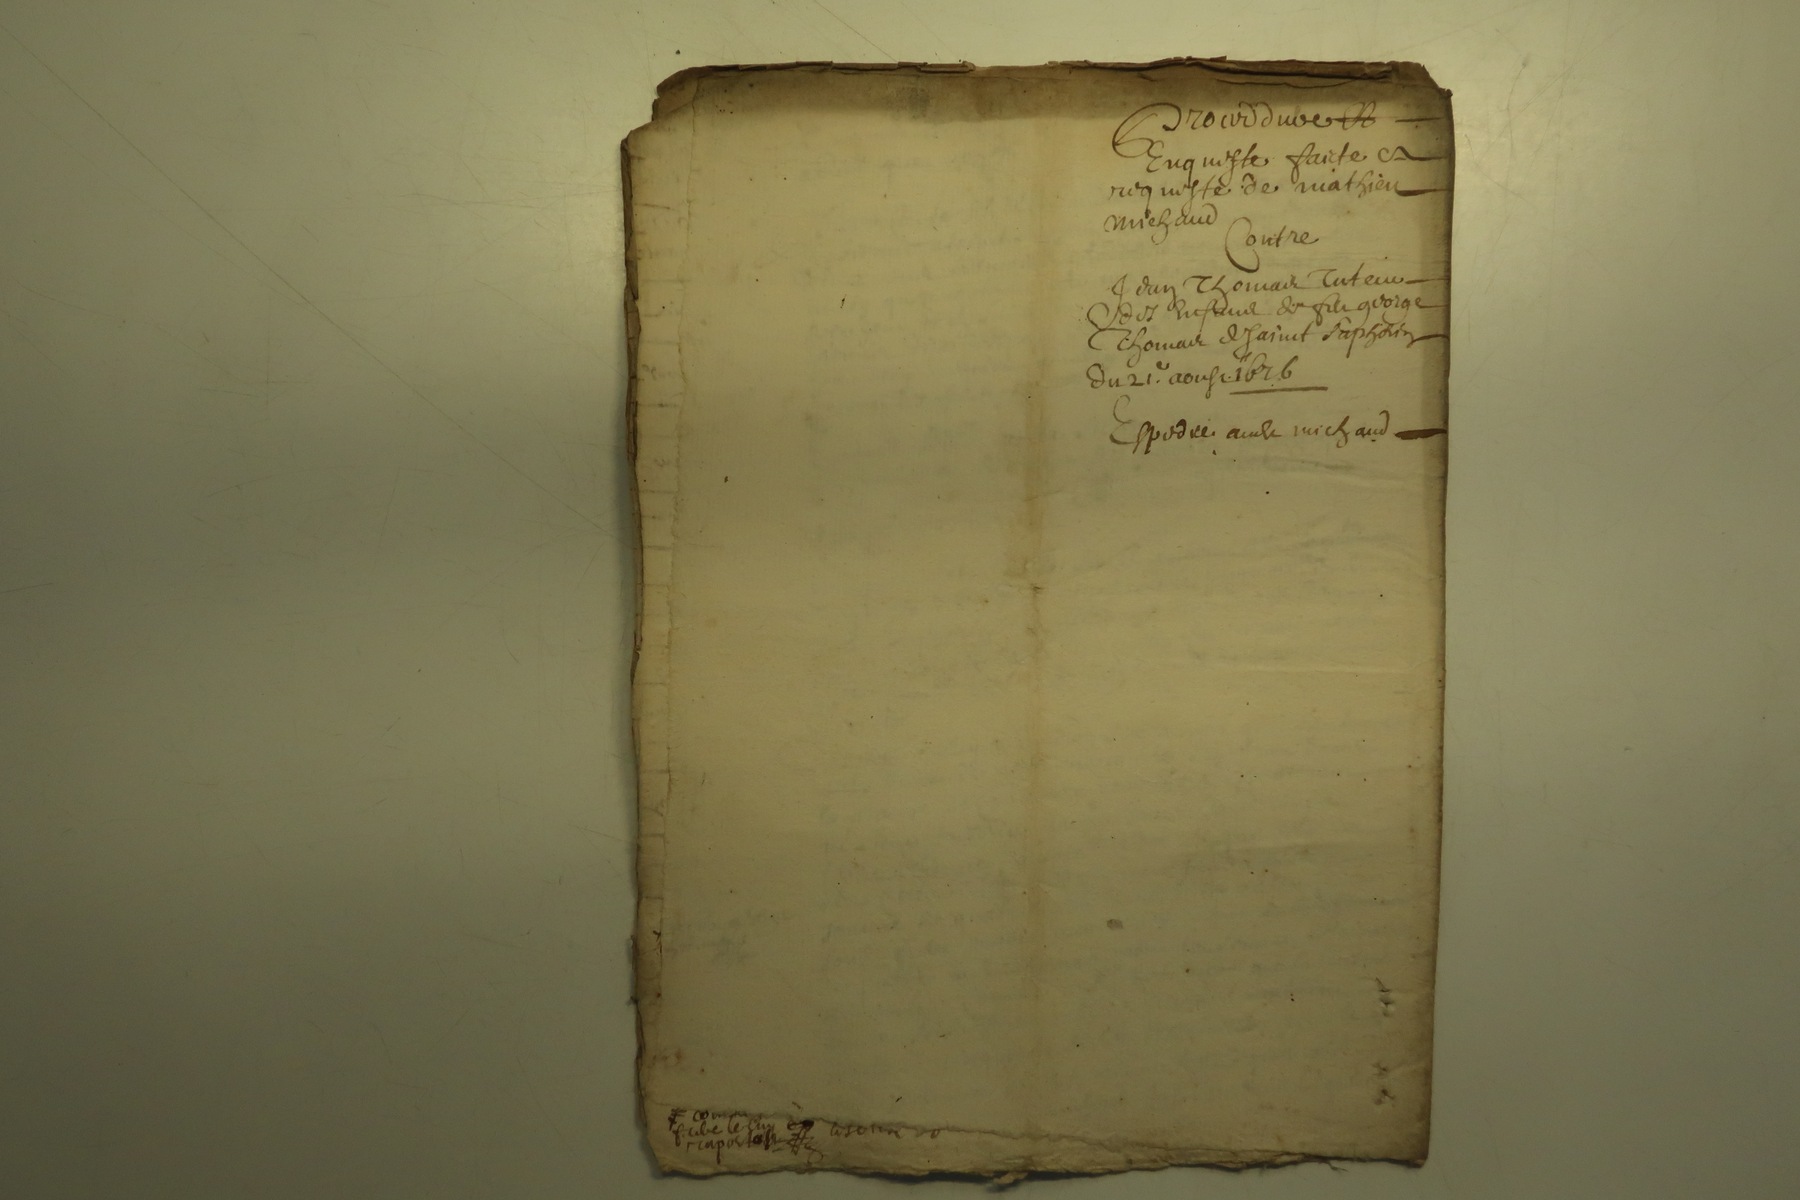 Procedure &
Enqueste faicte a
requeste de mathieu
michaud
Contre
Jean Thomas Tuteur
des enfans de feu george
Thomas de saint Saphorin
du 21.e aoust 1676
Expedié audt michaud
raporte